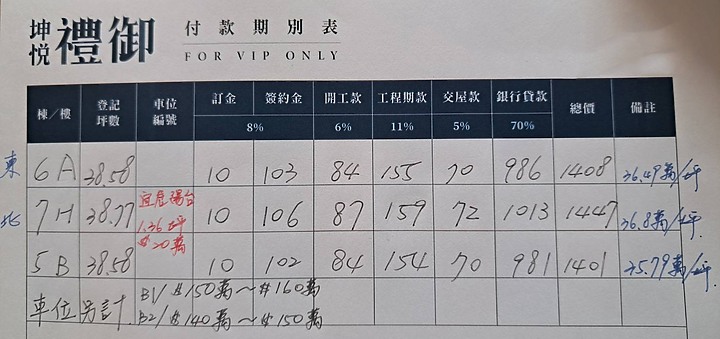 坤悅 禮御 付款期別表
FOR VIP ONLY
棟／樓 登記坪數 車位編號 訂金 簽約金 開工款 工程期款 交屋款 銀行貸款 總價 備註
8% 6% 11% 5% 70%
東 6A 38.58 10 103 84 155 70 986 1408 36.49萬/坪
北 7H 38.77 宜居陽台 10 106 87 159 72 1013 1447 36.8萬/坪
1.36坪
$20萬
5B 38.58 10 102 84 154 70 981 1401 35.79萬/坪
車位另計 B1/$150萬～$160萬
B2/$140萬～$150萬